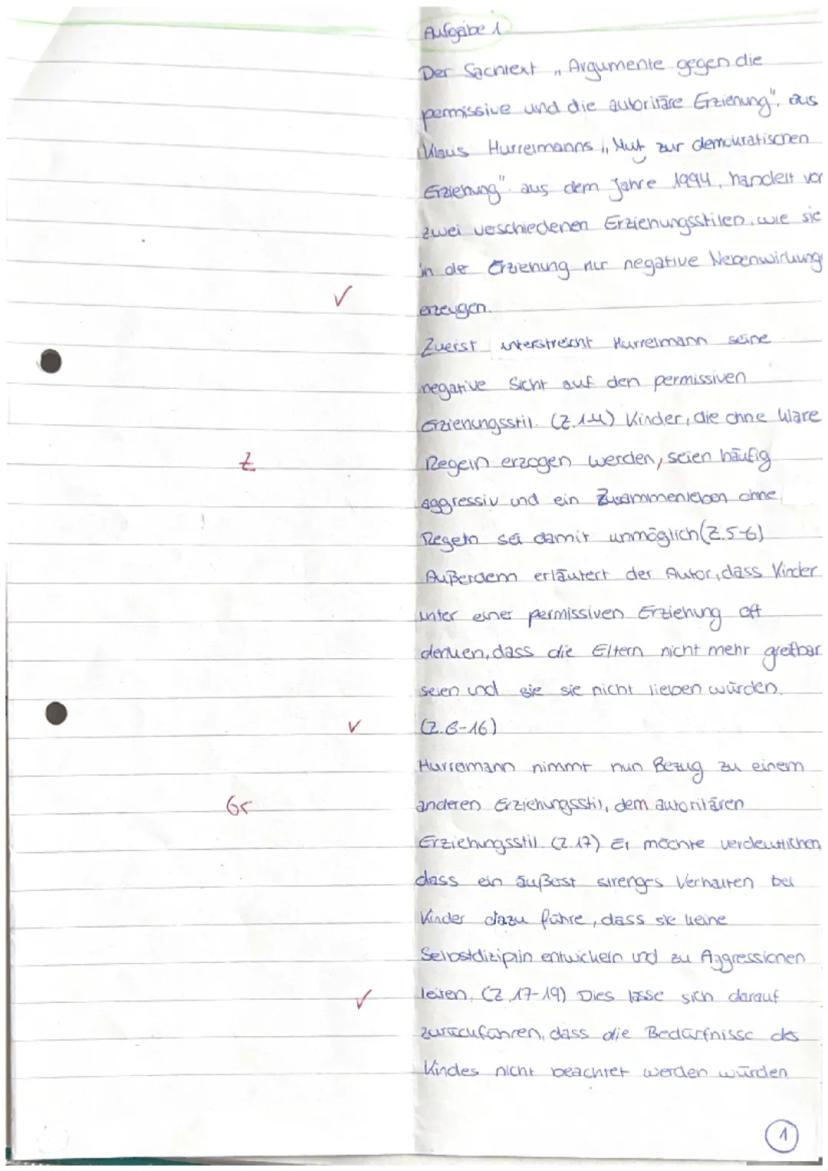 Aufgabe 1
Der Sachtext „Argumente gegen die
permissive und die autoritäre Erziehung", aus
Klaus Hurrelmanns „Mut zur demokratischen
Erziehung" aus dem Jahre 1994, handelt von
zwei verschiedenen Erziehungsstilen, wie sie
in der Erziehung nur negative Nebenwirkung
✓ erzeugen.
Zuerst unterstreicht Hurrelmann seine
negative Sicht auf den permissiven
Erziehungsstil. (Z.1-4) Kinder, die ohne klare
Z Regeln erzogen werden, seien häufig
aggressiv und ein Zusammenleben ohne
Regeln sei damit unmöglich (Z.5-6)
Außerdem erläutert der Autor, dass Kinder
unter einer permissiven Erziehung oft
denken, dass die Eltern nicht mehr greifbar
seien und sie sie nicht lieben würden.
✓ (Z.6-16)
Hurrelmann nimmt nun Bezug zu einem
Gr anderen Erziehungsstil, dem autoritären
Erziehungsstil. (Z.17) Er möchte verdeutlichen
dass ein äußerst strenges Verhalten bei
Kinder dazu führe, dass sie keine
Selbstdiziplin entwickeln und zu Aggressionen
✓ leiten. (Z.17-19) Dies lasse sich darauf
zurückführen, dass die Bedürfnisse des
Kindes nicht beachtet werden würden
1